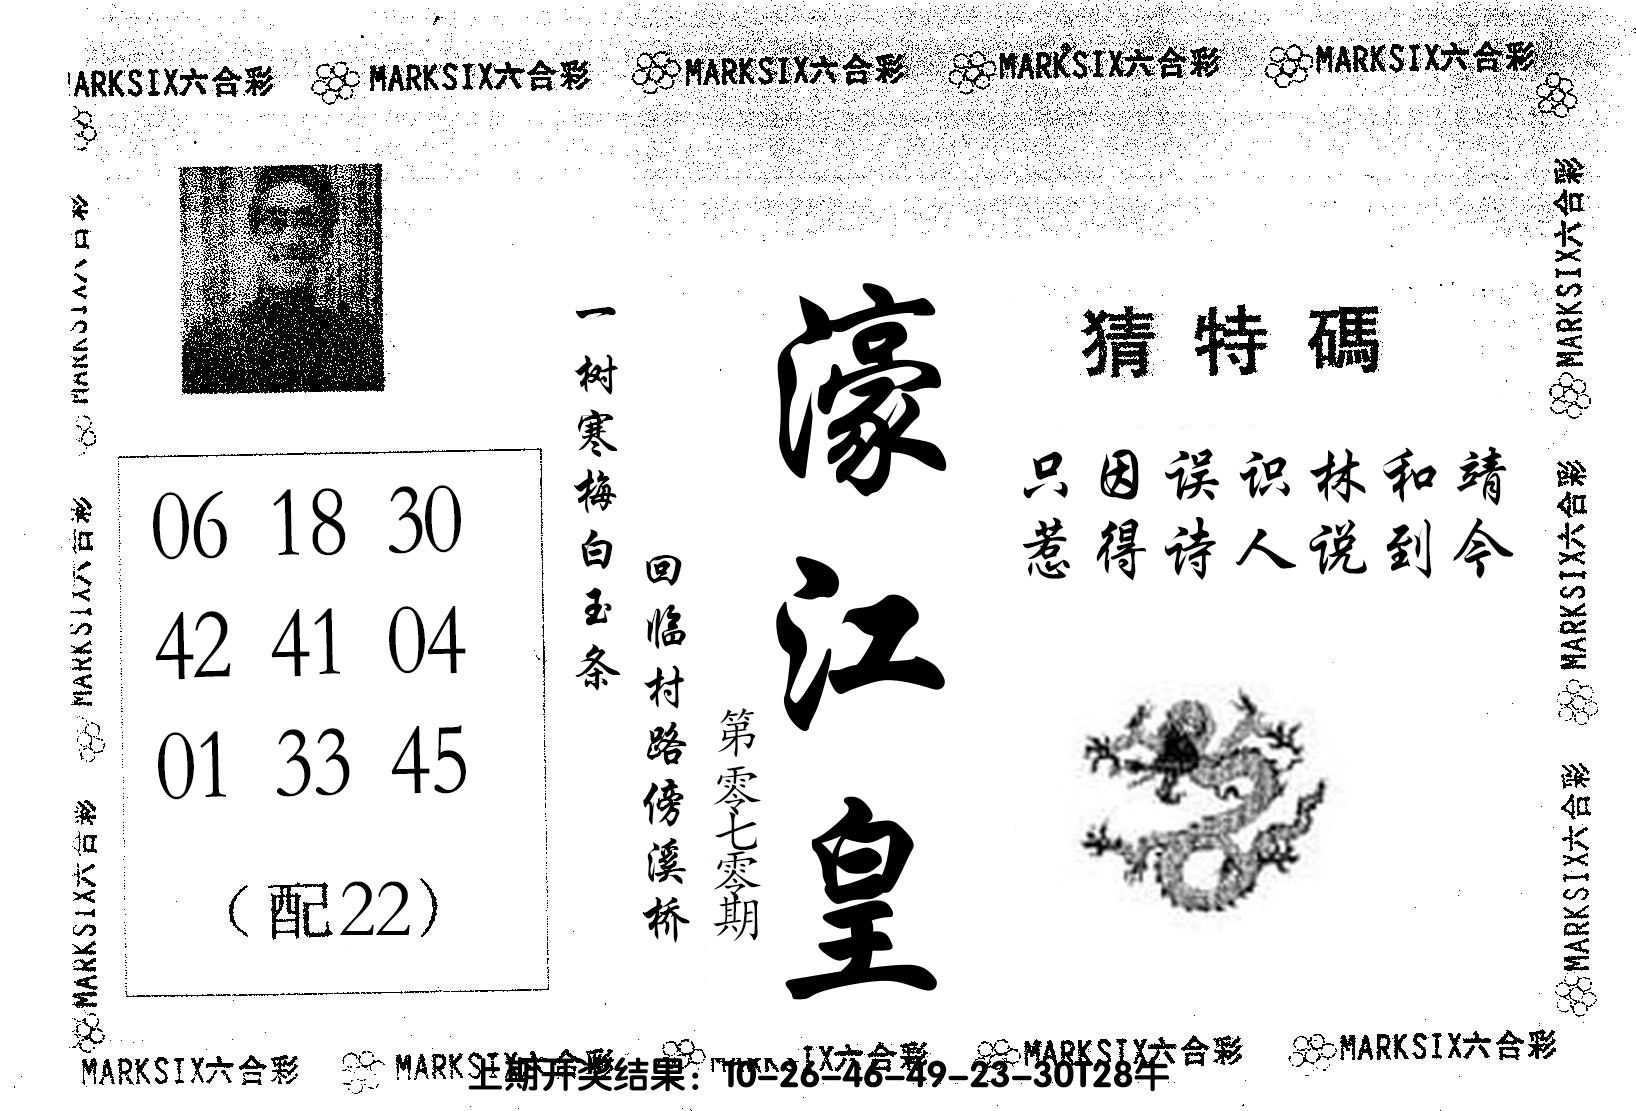 MARKSIX六合彩 MARKSIX六合彩 MARKSIX六合彩 MARKSIX六合彩
猜特碼
只因误识林和靖
惹得诗人说到今
濠江皇
第零七零期
一树寒梅白玉条
回临村路傍溪桥
06 18 30
42 41 04
01 33 45
(配22)
MARKSIX六合彩
MARKSIX六合彩
MARKSIX六合彩
MARKSIX六合彩
MARKSIX六合彩
MARKSIX六合彩 MARKSIX六合彩 MARKSIX六合彩 MARKSIX六合彩
上期开奖结果：10-26-46-49-23-30T28牛